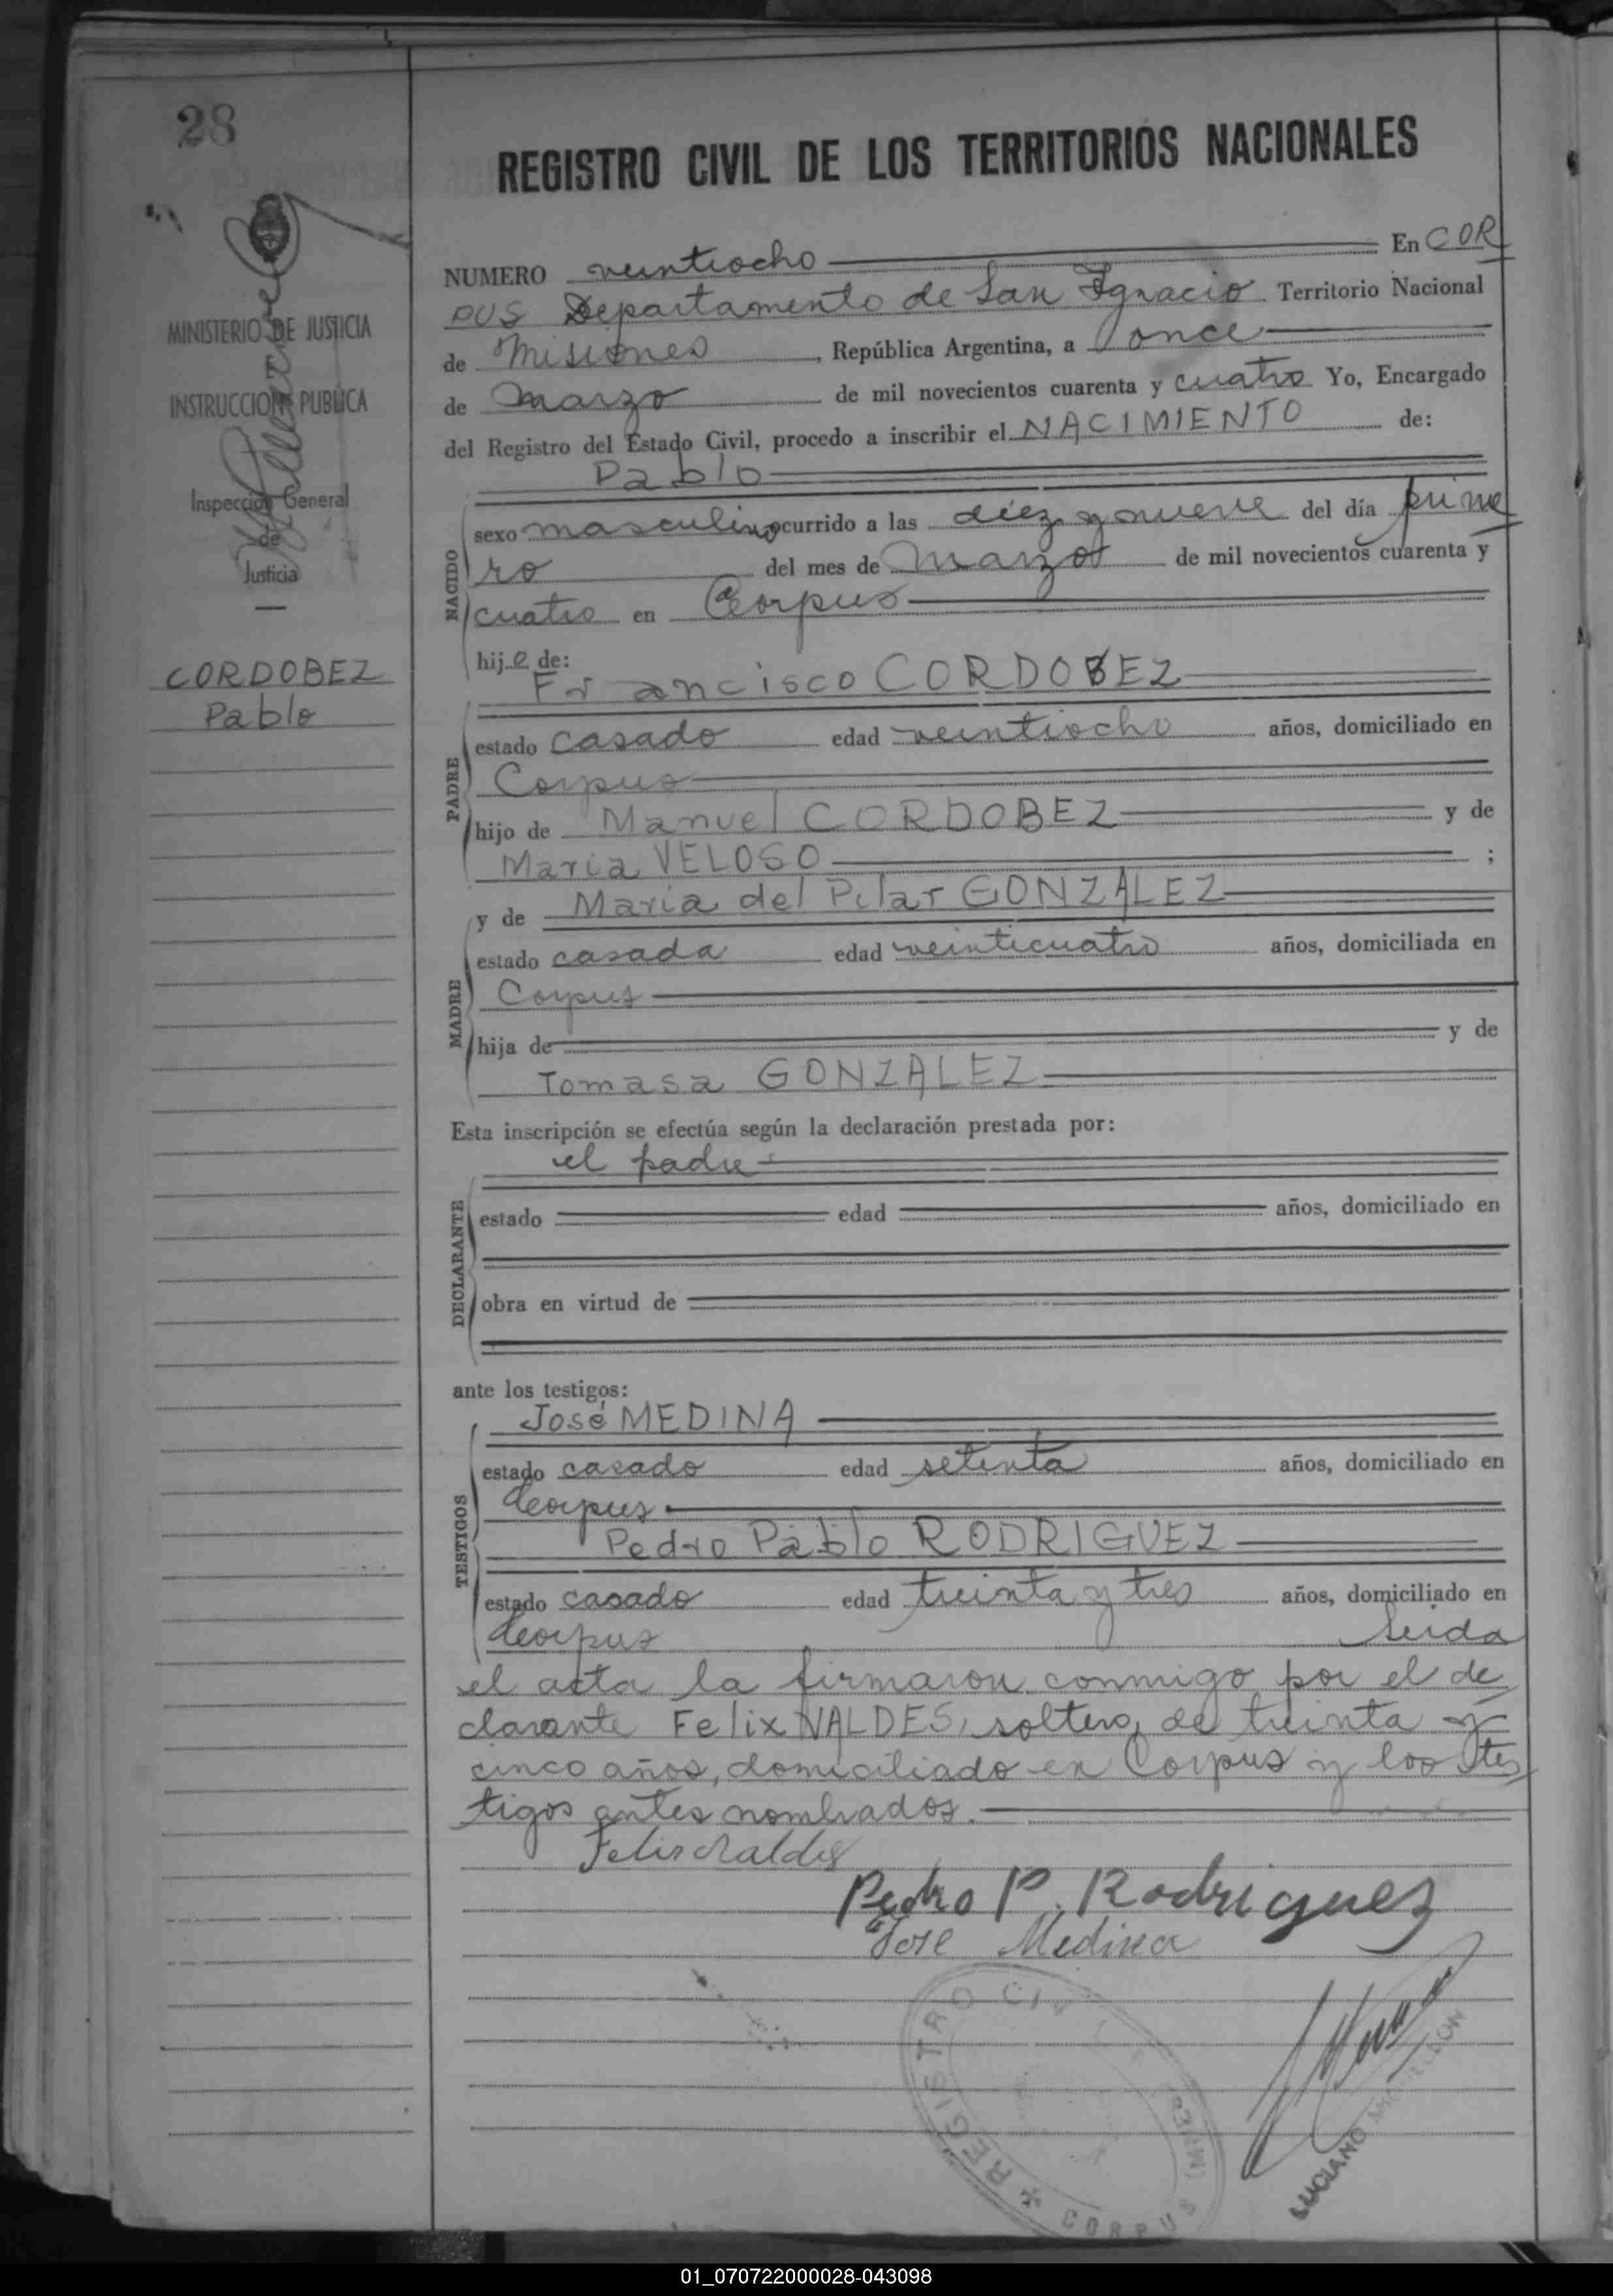 28
REGISTRO CIVIL DE LOS TERRITORIOS NACIONALES
MINISTERIO DE JUSTICIA
INSTRUCCION PUBLICA
Inspección General
de
Justicia
CORDOBEZ
Pablo
NUMERO veintiocho En COR
PUS Departamento de San Ignacio Territorio Nacional
de Misiones, República Argentina, a once
de Marzo de mil novecientos cuarenta y cuatro Yo, Encargado
del Registro del Estado Civil, procedo a inscribir el NACIMIENTO de:
Pablo
NACIDO
sexo masculino ocurrido a las diez y nueve del día prime
ro del mes de Marzo de mil novecientos cuarenta y
cuatro en Corpus
hijo de:
Francisco CORDOBEZ
PADRE
estado casado edad veintiocho años, domiciliado en
Corpus
hijo de Manuel CORDOBEZ y de
Maria VELOSO ;
y de Maria del Pilar GONZALEZ
MADRE
estado casada edad veinticuatro años, domiciliada en
Corpus
hija de y de
Tomasa GONZALEZ
Esta inscripción se efectúa según la declaración prestada por:
el padre
DECLARANTE
estado edad años, domiciliado en
obra en virtud de
ante los testigos:
José MEDINA
TESTIGOS
estado casado edad setenta años, domiciliado en
Corpus
Pedro Pablo RODRIGUEZ
estado casado edad treinta y tres años, domiciliado en
Corpus Leida
el acta la firmaron conmigo por el de
clarante Felix VALDES, soltero, de treinta y
cinco años, domiciliado en Corpus y los tes
tigos antes nombrados.
Felix Valdes
Pedro P. Rodriguez
Jose Medina
REGISTRO CIVIL
CORPUS (MNES)
LUCIANO
01_070722000028-043098